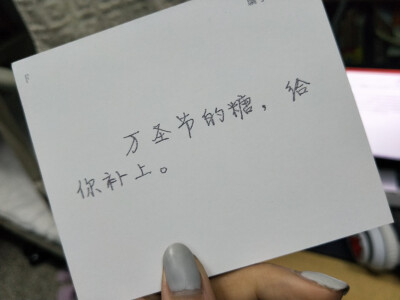 万圣节的糖，给
你补上。